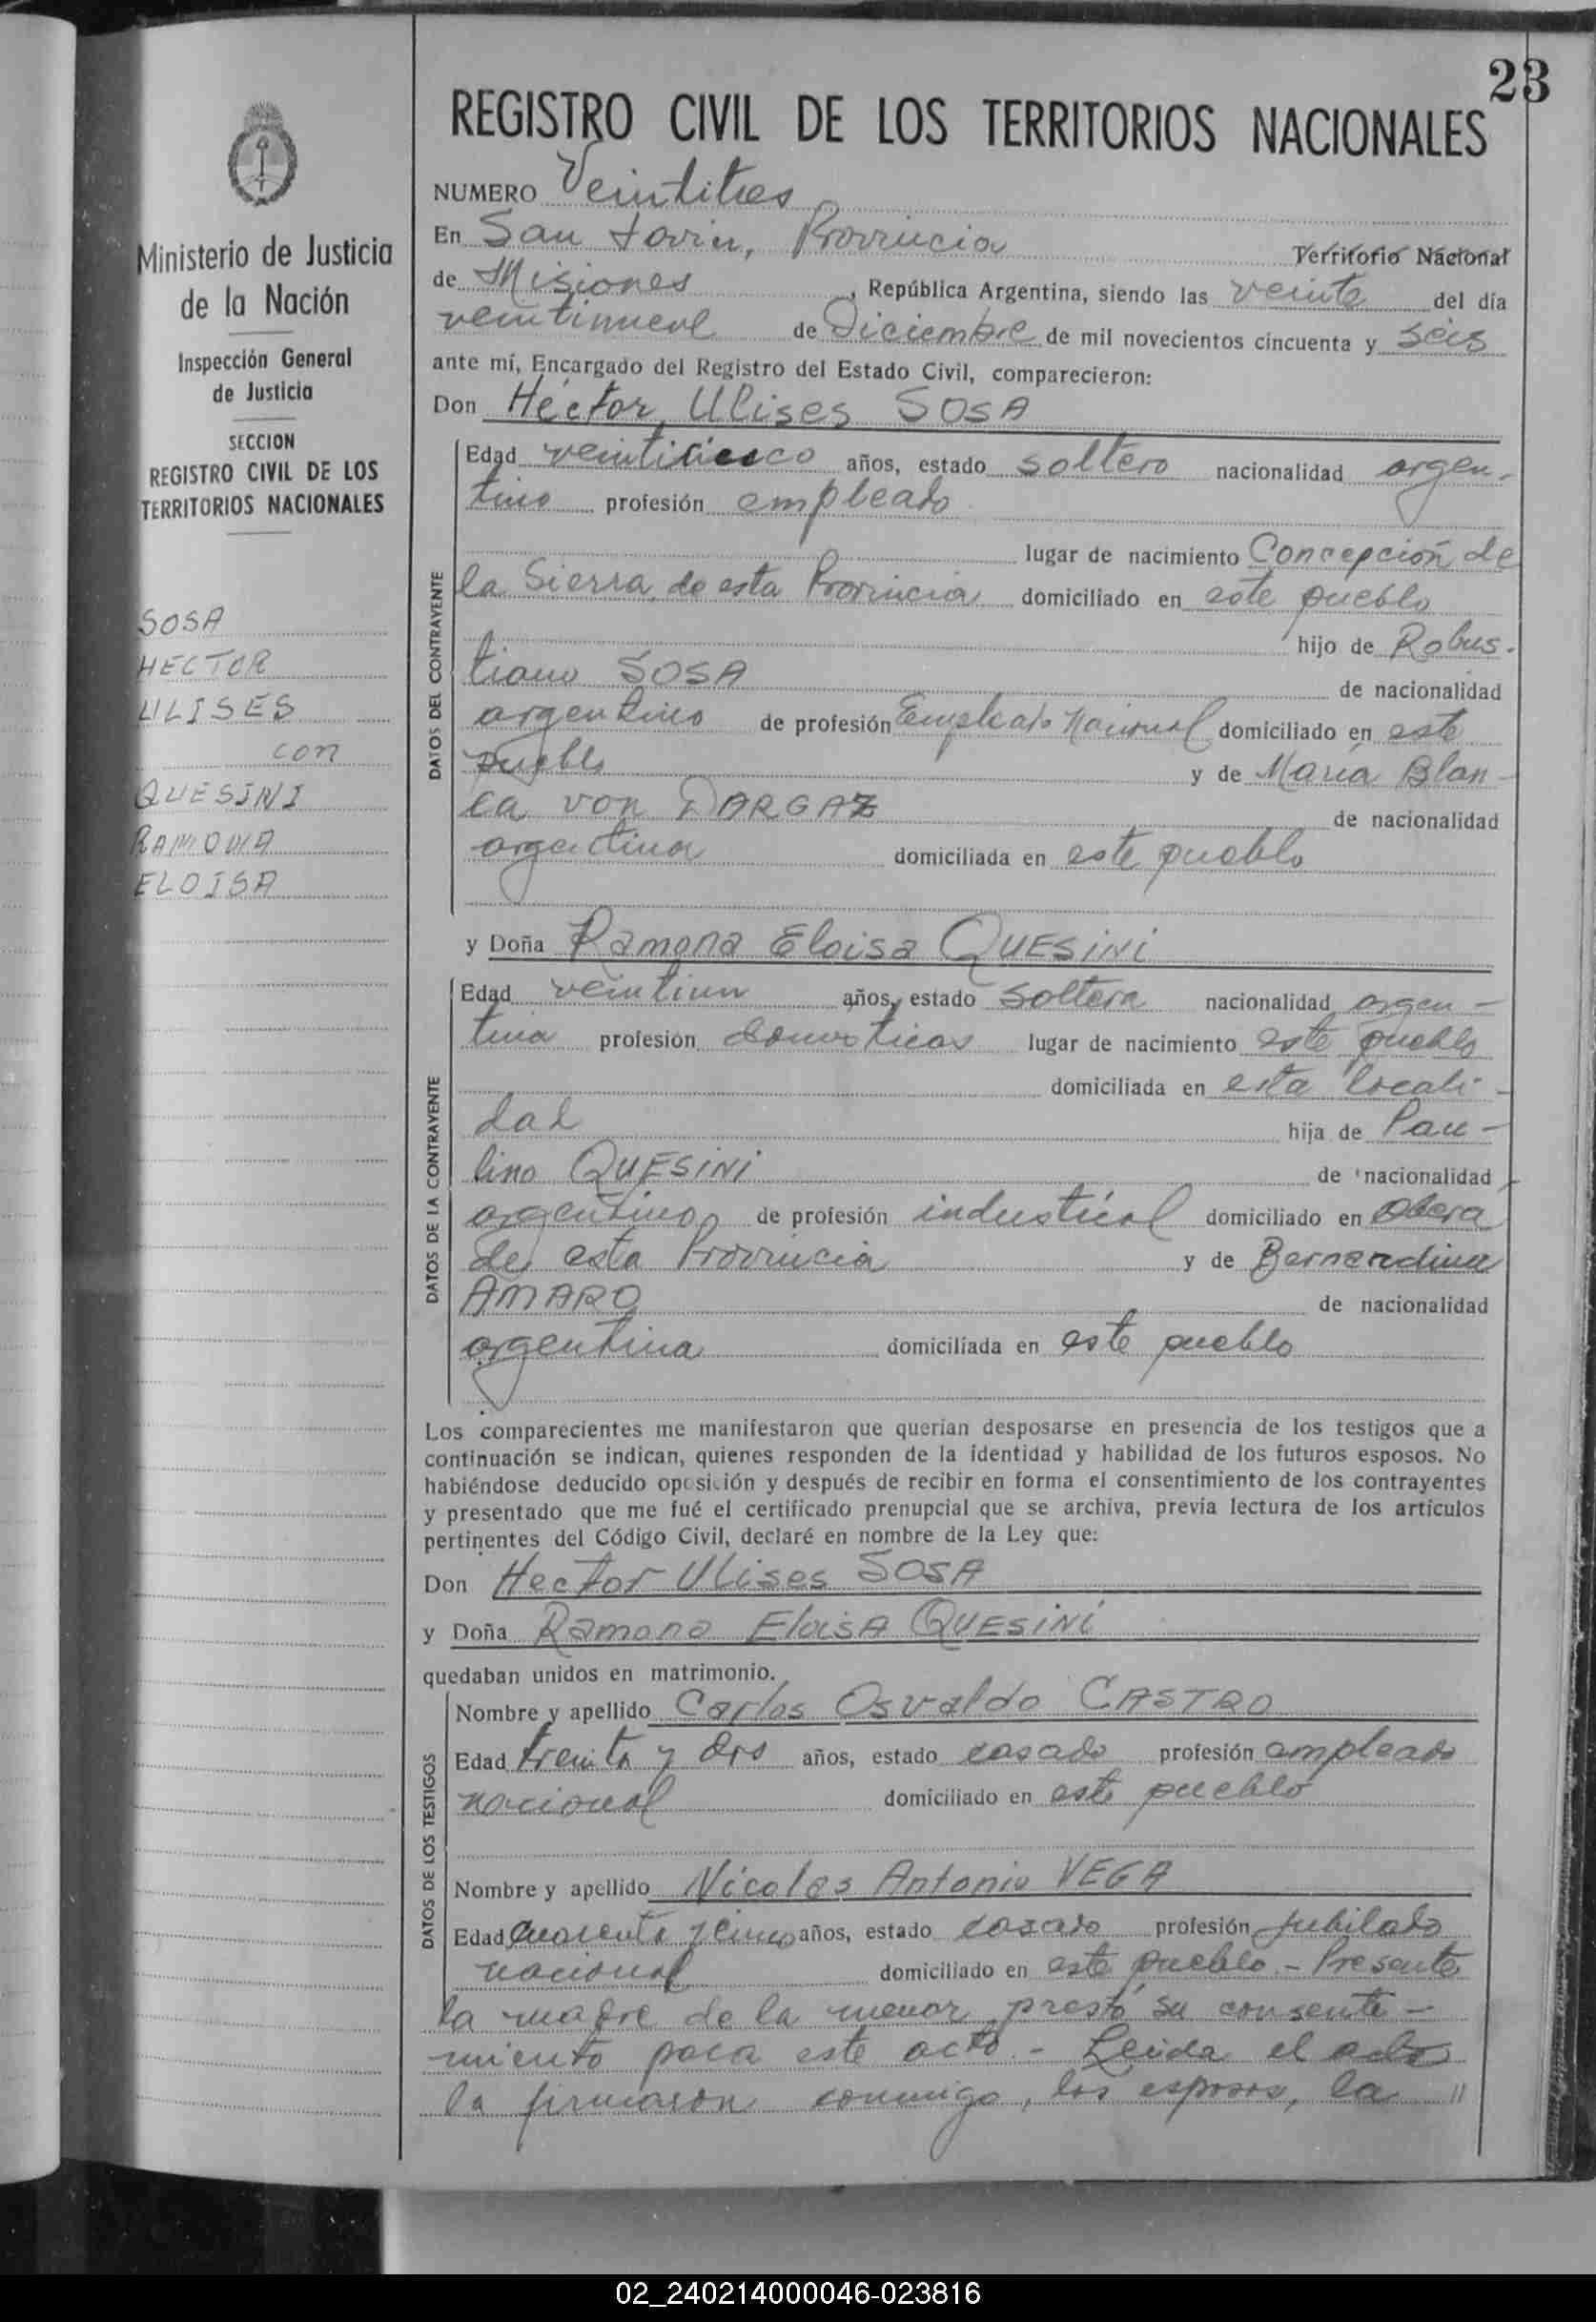 23
REGISTRO CIVIL DE LOS TERRITORIOS NACIONALES
Ministerio de Justicia
de la Nación
Inspección General
de Justicia
SECCION
REGISTRO CIVIL DE LOS
TERRITORIOS NACIONALES
SOSA
HECTOR
ULISES
con
QUESINI
RAMONA
ELOISA
NUMERO Veintitres
En San Javier, Provincia Territorio Nacional
de Misiones, República Argentina, siendo las veinte del día
veintinueve de Diciembre de mil novecientos cincuenta y seis
ante mí, Encargado del Registro del Estado Civil, comparecieron:
Don Héctor Ulises SOSA
DATOS DEL CONTRAYENTE
Edad veinticinco años, estado soltero nacionalidad argen-
tino profesión empleado
lugar de nacimiento Concepción de
la Sierra de esta Provincia domiciliado en este pueblo
hijo de Robus-
tiano SOSA de nacionalidad
argentino de profesión Empleado Nacional domiciliado en este
pueblo y de María Blan-
ca von DARGAZ de nacionalidad
argentina domiciliada en este pueblo
y Doña Ramona Eloisa QUESINI
DATOS DE LA CONTRAYENTE
Edad veintiun años, estado soltera nacionalidad argen-
tina profesión domésticas lugar de nacimiento este pueblo
domiciliada en esta locali-
dad hija de Pau-
lino QUESINI de nacionalidad
argentino, de profesión industrial domiciliado en Obera
de esta Provincia y de Bernardina
AMARO de nacionalidad
argentina domiciliada en este pueblo
Los comparecientes me manifestaron que querían desposarse en presencia de los testigos que a
continuación se indican, quienes responden de la identidad y habilidad de los futuros esposos. No
habiéndose deducido oposición y después de recibir en forma el consentimiento de los contrayentes
y presentado que me fué el certificado prenupcial que se archiva, previa lectura de los artículos
pertinentes del Código Civil, declaré en nombre de la Ley que:
Don Hector Ulises SOSA
y Doña Ramona Eloisa QUESINI
quedaban unidos en matrimonio.
DATOS DE LOS TESTIGOS
Nombre y apellido Carlos Osvaldo CASTRO
Edad treinta y dos años, estado casado profesión empleado
nacional domiciliado en este pueblo
Nombre y apellido Nicolas Antonio VEGA
Edad cuarenta y cinco años, estado casado profesión jubilado
nacional domiciliado en este pueblo.- Presente
la madre de la menor, prestó su consenti-
miento para este acto.- Leída el acta
la firmaron conmigo, los esposos, la "
02_240214000046-023816